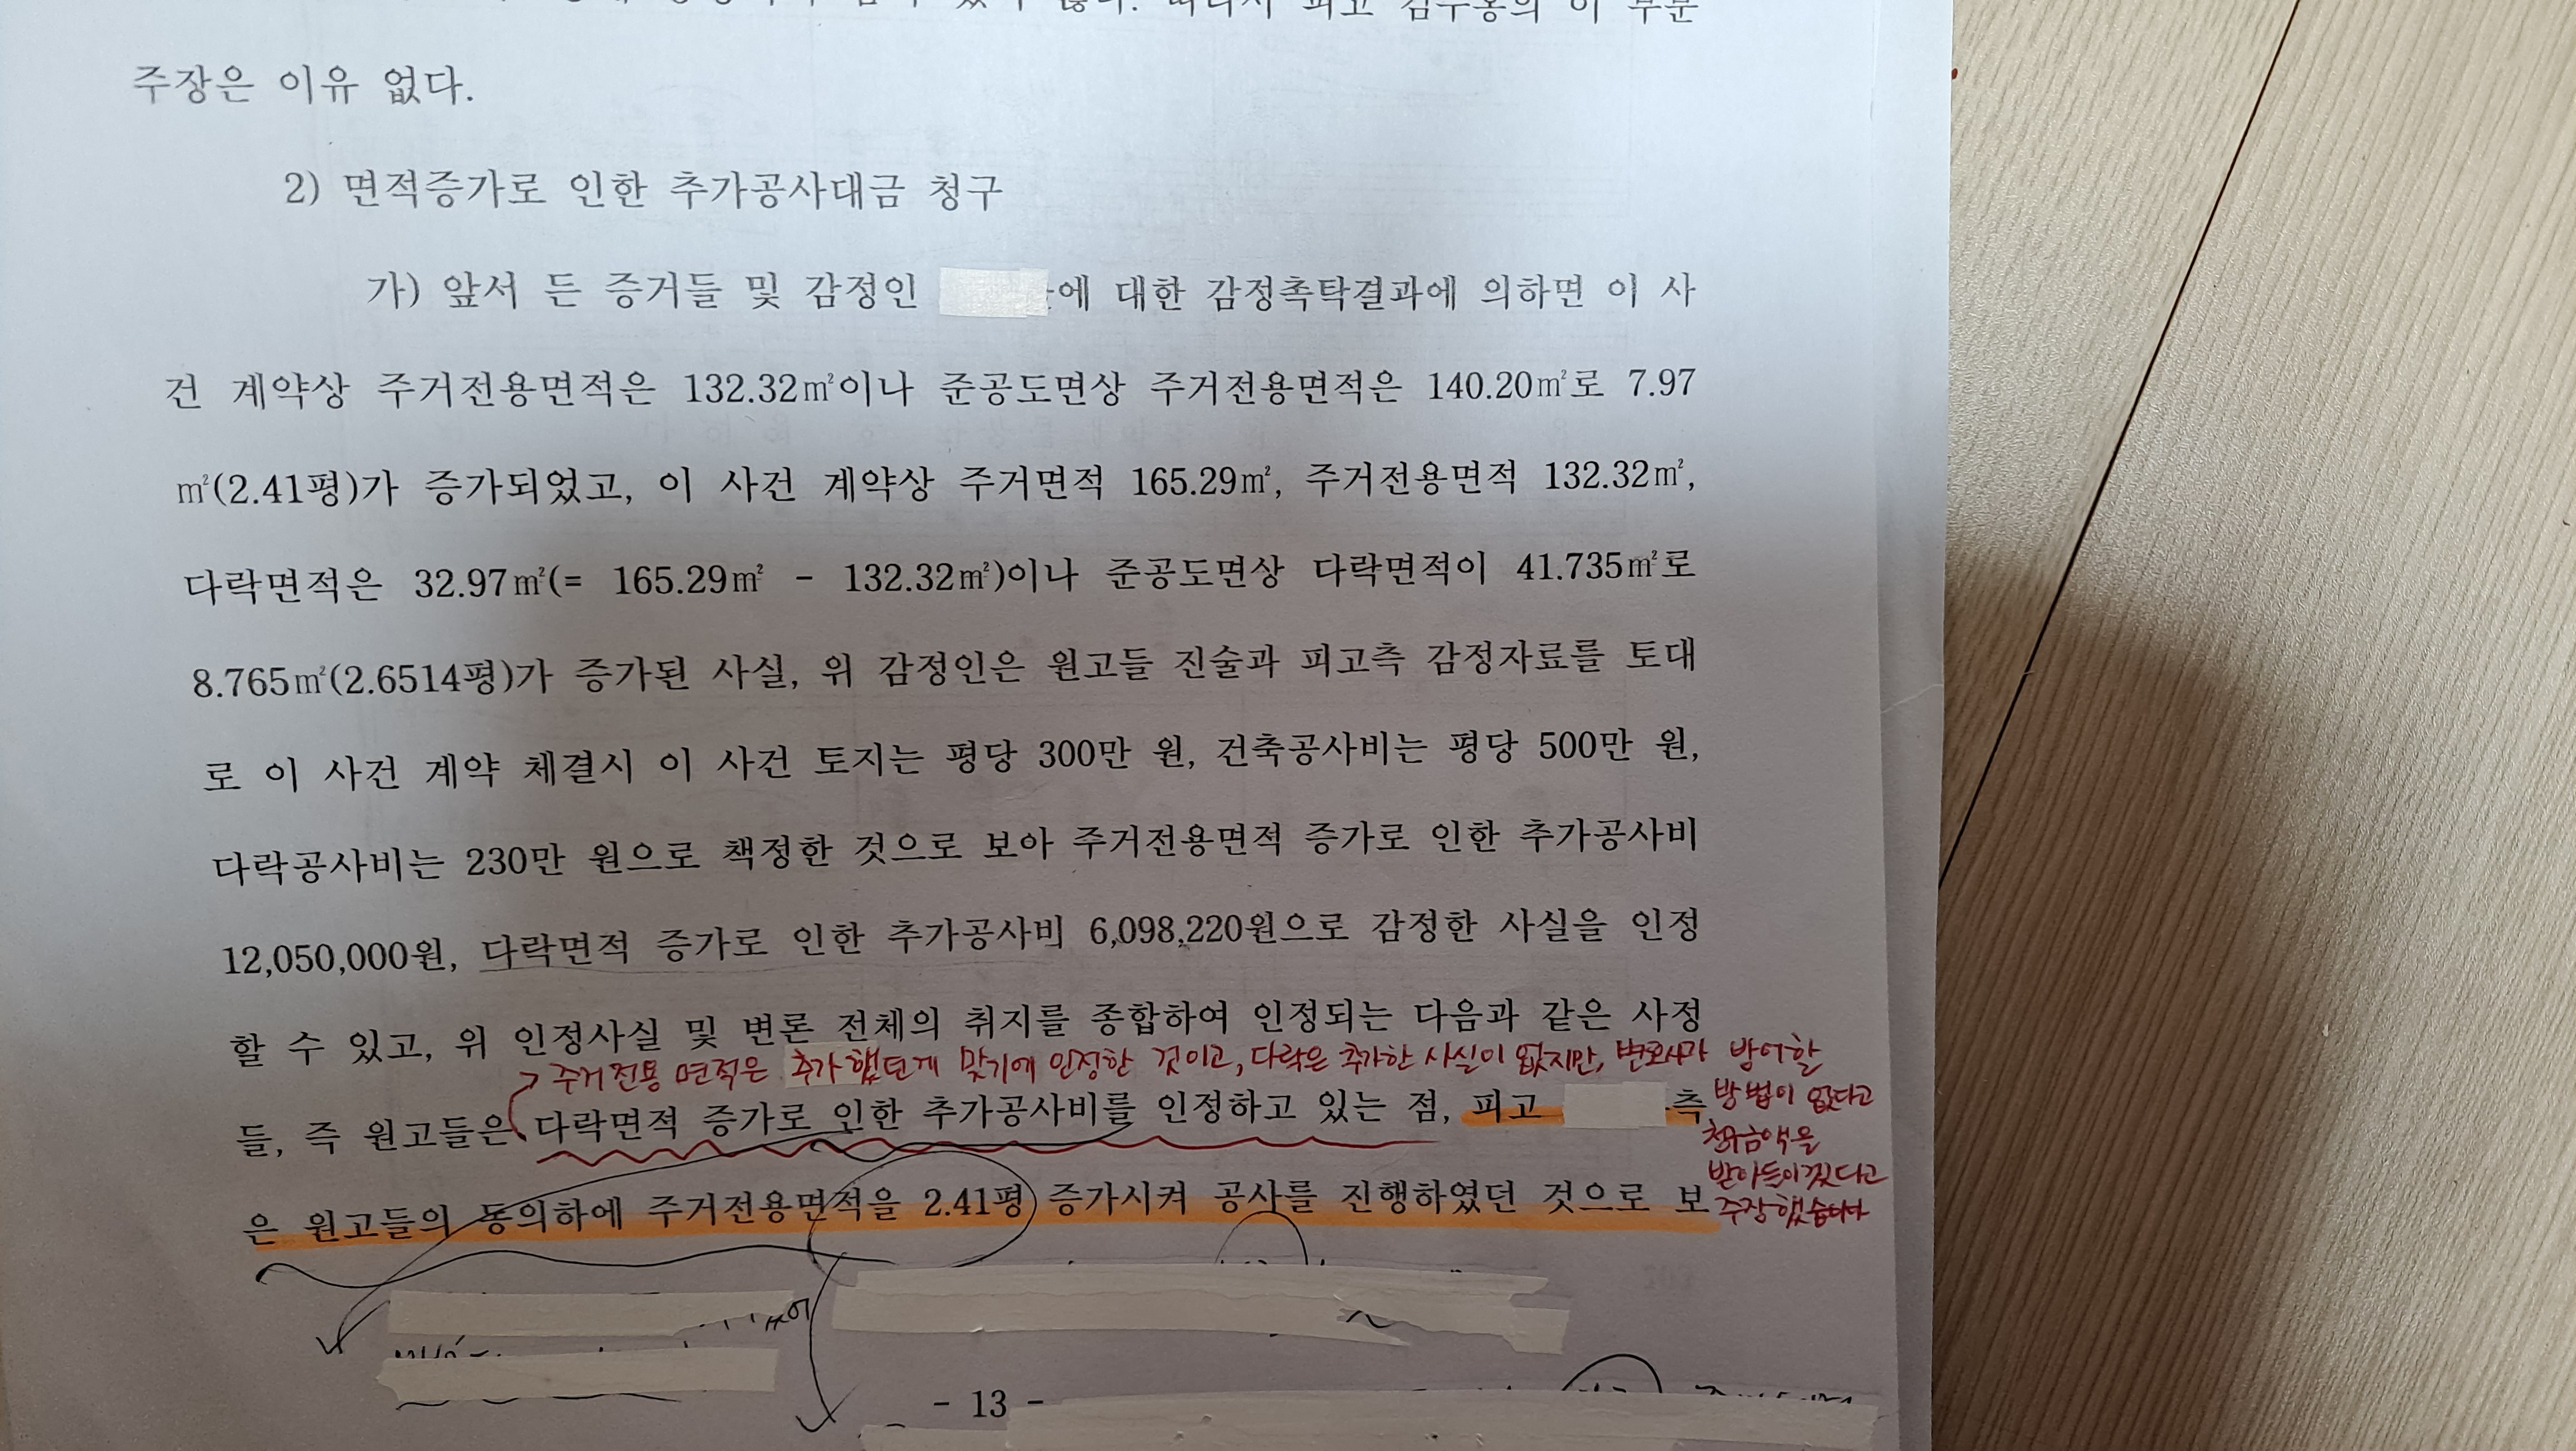 피고 김수홍의 이 부분
주장은 이유 없다.
2) 면적증가로 인한 추가공사대금 청구
가) 앞서 든 증거들 및 감정인 에 대한 감정촉탁결과에 의하면 이 사
건 계약상 주거전용면적은 132.32㎡이나 준공도면상 주거전용면적은 140.20㎡로 7.97
㎡(2.41평)가 증가되었고, 이 사건 계약상 주거면적 165.29㎡, 주거전용면적 132.32㎡,
다락면적은 32.97㎡(= 165.29㎡ - 132.32㎡)이나 준공도면상 다락면적이 41.735㎡로
8.765㎡(2.6514평)가 증가된 사실, 위 감정인은 원고들 진술과 피고측 감정자료를 토대
로 이 사건 계약 체결시 이 사건 토지는 평당 300만 원, 건축공사비는 평당 500만 원,
다락공사비는 230만 원으로 책정한 것으로 보아 주거전용면적 증가로 인한 추가공사비
12,050,000원, 다락면적 증가로 인한 추가공사비 6,098,220원으로 감정한 사실을 인정
할 수 있고, 위 인정사실 및 변론 전체의 취지를 종합하여 인정되는 다음과 같은 사정
주거전용 면적은 추가했던게 맞기에 인정한 것이고, 다락은 추가한 사실이 없지만, 변호사가 방어할
방법이 없다고
청구금액을
받아들이겠다고
주장했습니다
들, 즉 원고들은 다락면적 증가로 인한 추가공사비를 인정하고 있는 점, 피고 측
은 원고들의 동의하에 주거전용면적을 2.41평 증가시켜 공사를 진행하였던 것으로 보
- 13 -